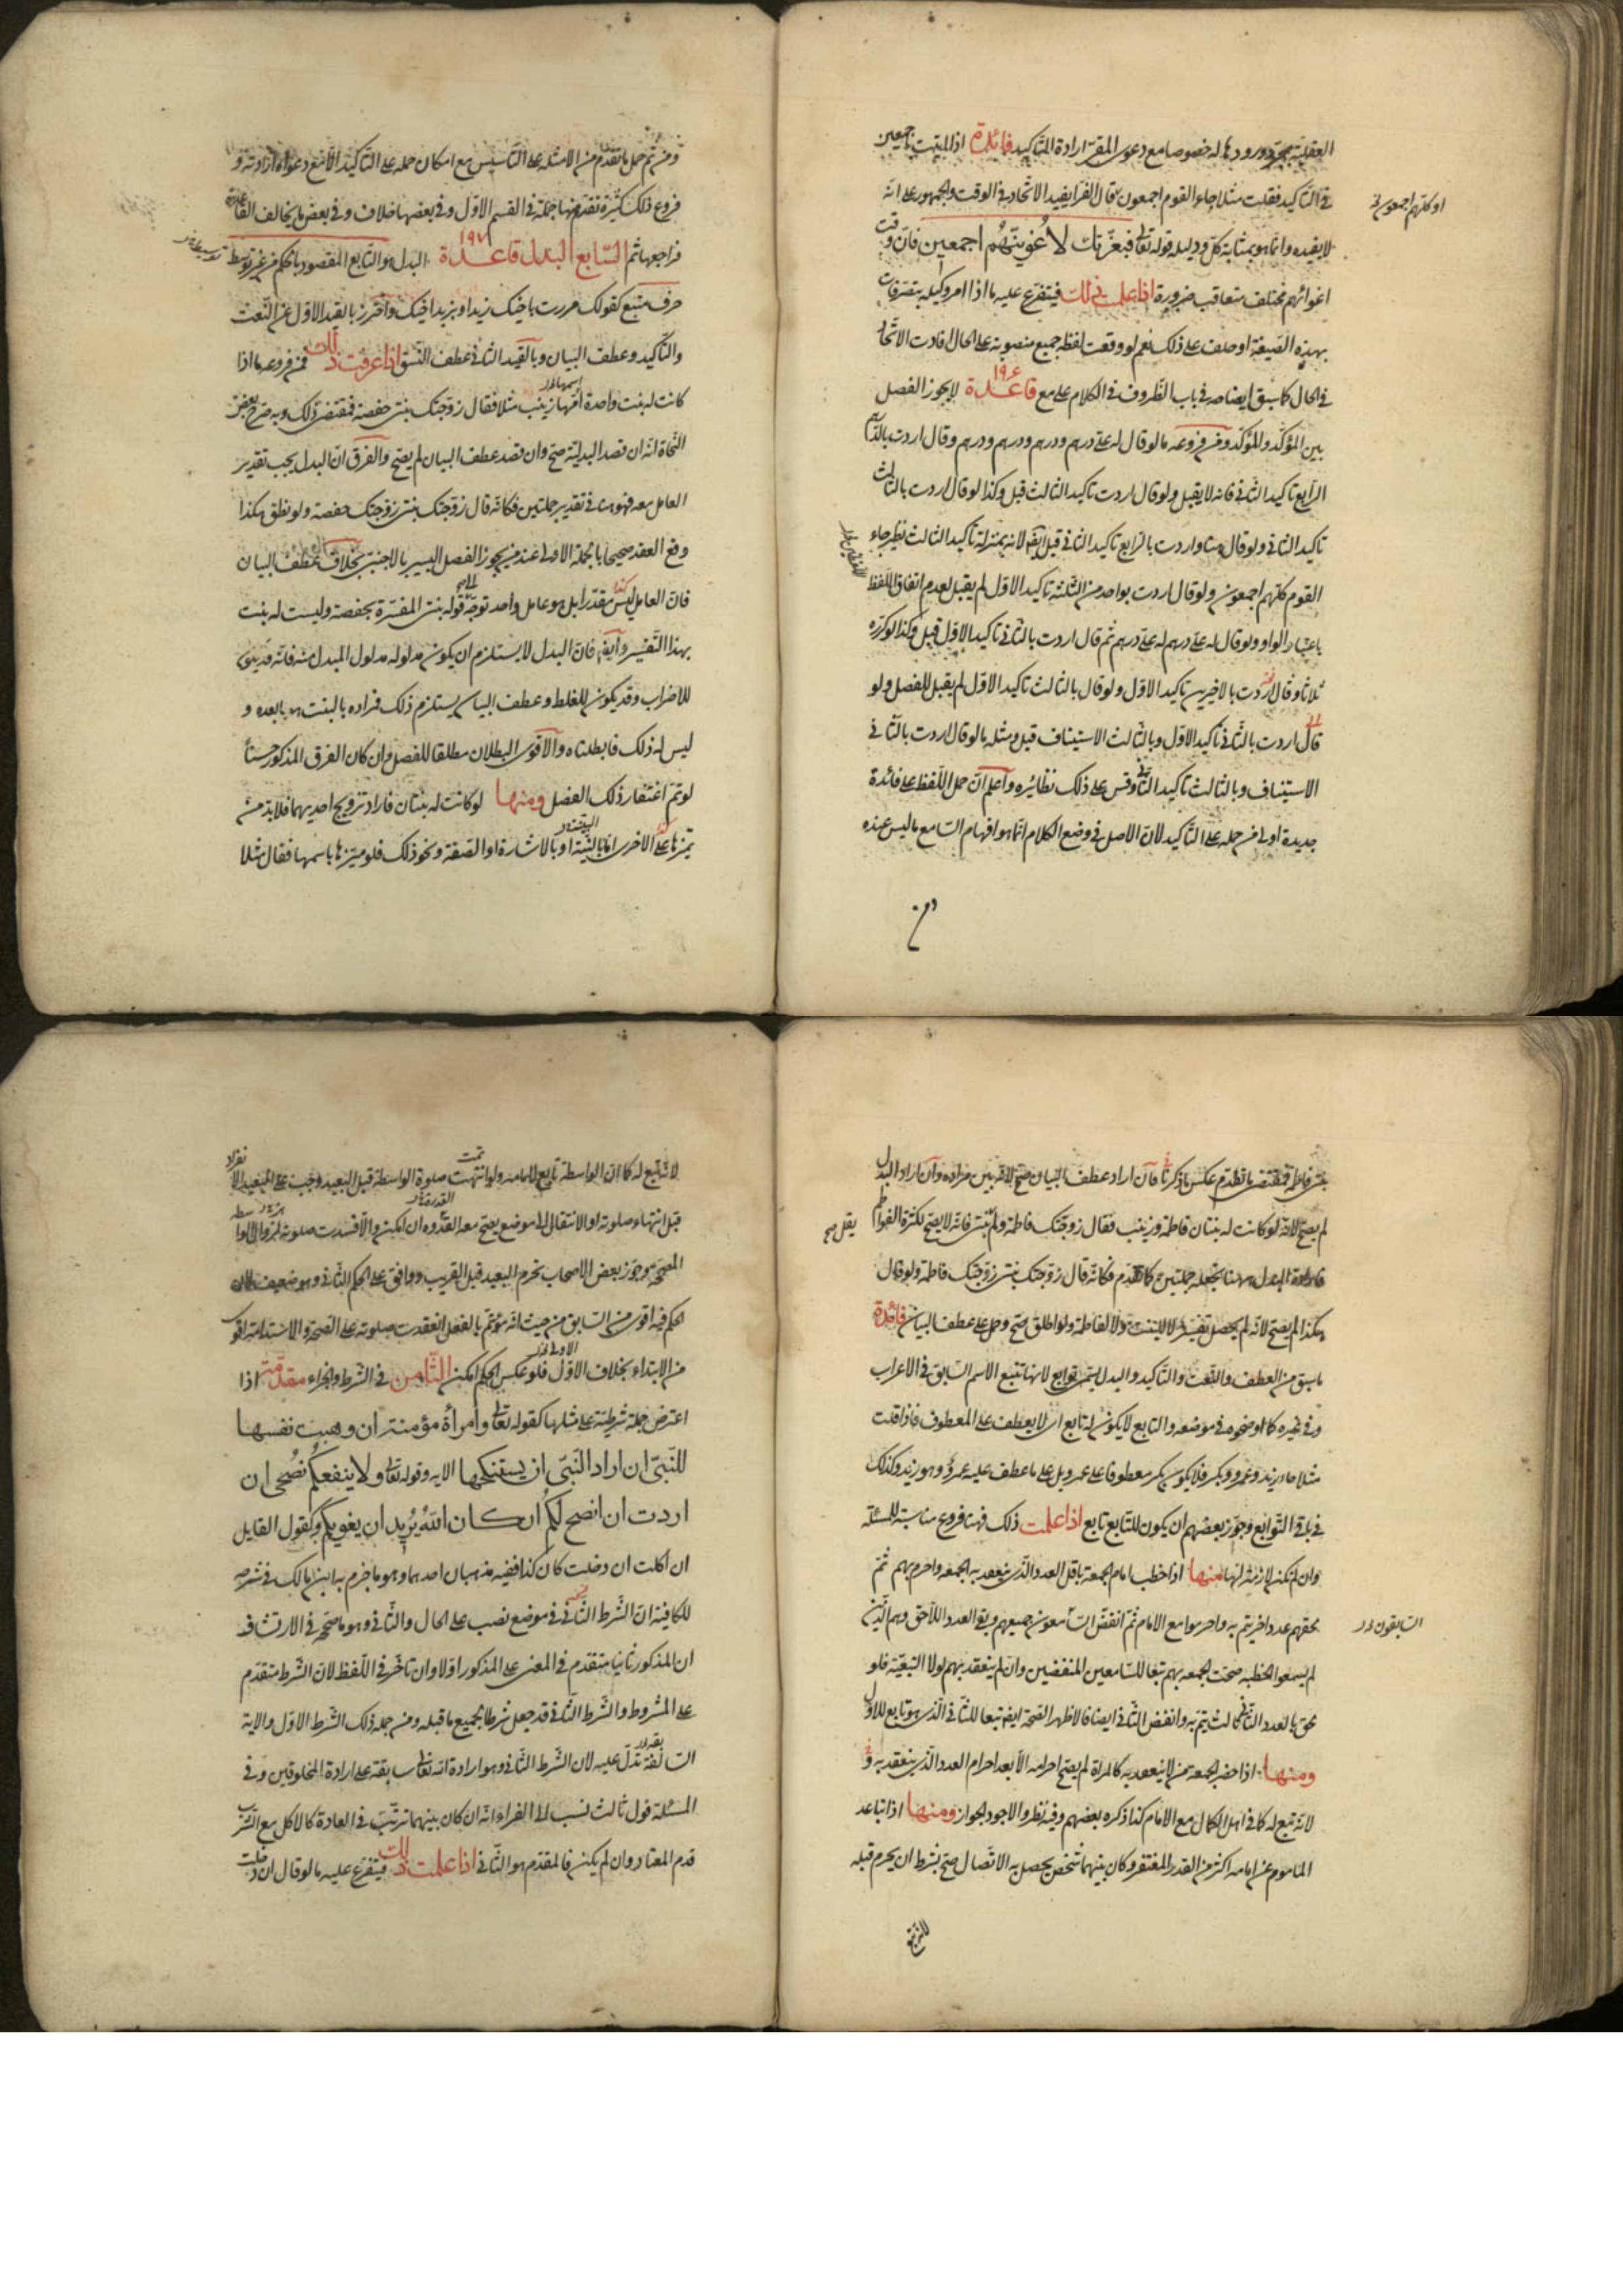 العقلية بمجرد ورودها له خصوصا مع دعوى المقر ارادة التاكيد فائدة اذا اتيت باجمعين
في التاكيد فقلت مثلا جاء القوم اجمعون قال الفرا يفيد الاتحاد في الوقت والجمهور على انه
لا يفيده وانما هو بمثابة كل ودليله قوله تعالى فبعزتك لأغوينهم اجمعين فان وقت
اغوائهم مختلف متعاقب ضرورة اذا علمت ذلك فيتفرع عليه ما اذا امر وكيله بتصرفات
بهذه الصيغة او حلف على ذلك نعم لو وقعت لفظة جميع منصوبة على الحال افادت الاتحاد
في الحال كما سبق ايضاحه في باب الظروف في الكلام على مع قاعدة ١٩٦ لا يجوز الفصل
بين المؤكد والمؤكد ومن فروعه ما لو قال له علي درهم ودرهم ودرهم ودرهم وقال اردت بالدرهم
الرابع تاكيد الثاني فانه لا يقبل ولو قال اردت تاكيد الثالث قبل وكذا لو قال اردت بالثالث
تاكيد الثاني ولو قال هنا واردت بالرابع تاكيد الثاني قبل ايضا لانه بمنزلة تاكيد الثالث نظير جاء
القوم كلهم اجمعون ولو قال اردت بواحد من الثلثة تاكيد الاول لم يقبل لعدم اتفاق اللفظ
باعتبار الواو ولو قال له علي درهم له علي درهم ثم قال اردت بالثاني تاكيد الاول قبل وكذا لو كرره
ثلاثا وقال اردت بالاخيرين تاكيد الاول ولو قال بالثالث تاكيد الاول لم يقبل للفصل ولو
قال اردت بالثاني تاكيد الاول وبالثالث الاستيناف قبل ومثله ما لو قال اردت بالثاني
الاستيناف وبالثالث تاكيد الثاني وقس على ذلك نظائره واعلم ان حمل اللفظ على فائدة
جديدة اولى من حمله على التاكيد لان الاصل في وضع الكلام انما هو افهام السامع ما ليس عنده
او كلهم اجمعون
ومن
ومن ثم حمل ما تقدم من الامثلة على التاسيس مع امكان حمله على التاكيد الا مع دعواه ارادته و
فروع ذلك كثيرة تقدم منها جملة في القسم الاول وفي بعضها خلاف وفي بعض ما يخالف القاعدة
فراجعها ثم السابع البدل قاعدة ١٩٧ البدل هو التابع المقصود بالحكم من غير توسط
حرف متبع كقولك مررت باخيك زيد او بزيد اخيك واحترز بالقيد الاول عن النعت
والتاكيد وعطف البيان وبالقيد الثاني عطف النسق اذا عرفت ذلك فمن فروعه ما اذا
كانت له بنت واحدة اسمها زينب مثلا فقال زوجتك بنتي حفصة فمقتضى ذلك وبه صرح بعض
النحاة انه ان قصد البدلية صح وان قصد عطف البيان لم يصح والفرق ان البدل يجب تقدير
العامل معه فهو في تقدير جملتين فكانه قال زوجتك بنتي زوجتك حفصة ولو نطق هكذا
وقع العقد صحيحا بالجملة الاولى عند من يجوز الفصل اليسير بالاجنبي بخلاف عطف البيان
فان العامل ليس مقدرا بل هو عامل واحد توجه الى قوله بنتي المفسرة بحفصة وليست له بنت
بهذا التفسير وايضا فان البدل لا يستلزم ان يكون مدلوله مدلول المبدل منه فانه قد يكون
للاضراب وقد يكون للغلط وعطف البيان يستلزم ذلك فمراده بالبنت هو ما بعده و
ليس له ذلك فابطلناه والاقوى البطلان مطلقا للفصل وان كان الفرق المذكور حسنا
لو تم اغتفار ذلك الفصل ومنها لو كانت له بنتان فاراد تزويج احديهما فلا بد من
تميزها على الاخرى اما بالنية او بالاشارة او الصفة ونحو ذلك فلو ميزها باسمها فقال مثلا
بنتي فاطمة فمقتضى ما تقدم عكس ما ذكرنا فان اراد عطف البيان صح لانه بين مراده وان اراد البدل
لم يصح لانه لو كانت له بنتان فاطمة وزينب فقال زوجتك فاطمة ولم يقل بنتي فانه لا يصح لكثرة الفواطم
البدل هنا يجعله جملتين كما تقدم فكانه قال زوجتك بنتي زوجتك فاطمة ولو قال
هكذا لم يصح لانه لم يحصل تفسير لا للبنت ولا لفاطمة ولو اطلق صح وحمل على عطف البيان فائدة
ما سبق من العطف والنعت والتاكيد والبدل يسمى توابع لانها تتبع الاسم السابق في الاعراب
وفي غيره كما اوضحوه في موضعه والتابع لا يكون له تابع اي لا يعطف على المعطوف فاذا قلت
مثلا جاء زيد وعمرو وبكر فلا يكون بكر معطوفا على عمرو بل على ما عطف عليه عمرو وهو زيد وكذلك
في باقي التوابع وجوز بعضهم ان يكون للتابع تابع اذا علمت ذلك فهنا فروع مناسبة للمسئلة
وان لم تكن لازمة لها منها اذا خطب امام الجمعة باقل العدد الذي ينعقد به الجمعه واحرم بهم ثم
لحقهم عدد اخر يتم به واحرموا مع الامام ثم انفض السامعون جميعهم وبقي العدد اللاحق وهم الذين
لم يسمعوا الخطبه صحت الجمعه بهم تبعا للسامعين المنفضين وان لم ينعقد بهم لولا التبعية فلو
لحق بالعدد الثاني ثالث يتم به وانفض الثاني ايضا فالاظهر الصحة ايضا تبعا للثاني الذي هو تابع للاول
ومنها اذا حضر الجمعه من لا ينعقد به كالمراة لم يصح احرامه الا بعد احرام العدد الذي ينعقد به
لانه تبع له كما في اهل الكمال مع الامام كذا ذكره بعضهم وفيه نظر والاجود الجواز ومنها اذا تباعد
الماموم عن امامه اكثر من القدر المغتفر وكان بينهما شخص يحصل به الاتصال صح بشرط ان يحرم قبله
السابقون
لانه تبع له كما ان الواسطة تابع لامامه ولو انتهت صلوة الواسطة قبل البعيد وجب على البعيد الانفراد
قبل انتهاء صلوته او الانتقال الى موضع يصح معه القدوة ان امكن والا فسدت صلوته لزوال الواسطة
المصححة وجوز بعض الاصحاب تحرم البعيد قبل القريب ووافق على الحكم الثاني وهو ضعيف لان
الحكم فيه اقوى من السابق من حيث انه مؤتم بالفعل انعقدت صلوته على الصحة والاستدامة اقوى
من الابتداء بخلاف الاول فلو عكس الحكم امكن الثامن في الشرط والجزاء مقدمة اذا
اعترض جملة شرطية على مثلها كقوله تعالى وامرأة مؤمنة ان وهبت نفسها
للنبي ان اراد النبي ان يستنكحها الايه وقوله تعالى ولا ينفعكم نصحي ان
اردت ان انصح لكم ان كان الله يريد ان يغويكم وكقول القايل
ان اكلت ان دخلت كان كذا ففيه مذهبان احدهما وهو ما جزم به ابن مالك في شرحه
للكافية ان الشرط الثاني في موضع نصب على الحال والثاني وهو ما صححه في الارتشاف
ان المذكور ثانيا متقدم في المعنى على المذكور اولا وان تاخر في اللفظ لان الشرط متقدم
على المشروط والشرط الثاني قد جعل شرطا لجميع ما قبله ومن جملة ذلك الشرط الاول والاية
السالفة تدل عليه لان الشرط الثاني وهو ارادة الله تعالى سابقة على ارادة المخلوقين وفي
المسئلة قول ثالث نسب الى الفراء انه ان كان بينهما ترتيب في العادة كالاكل مع الشرب
قدم المعتاد وان لم يكن فالمقدم هو الثاني اذا علمت ذلك فيتفرع عليه ما لو قال ان دخلت